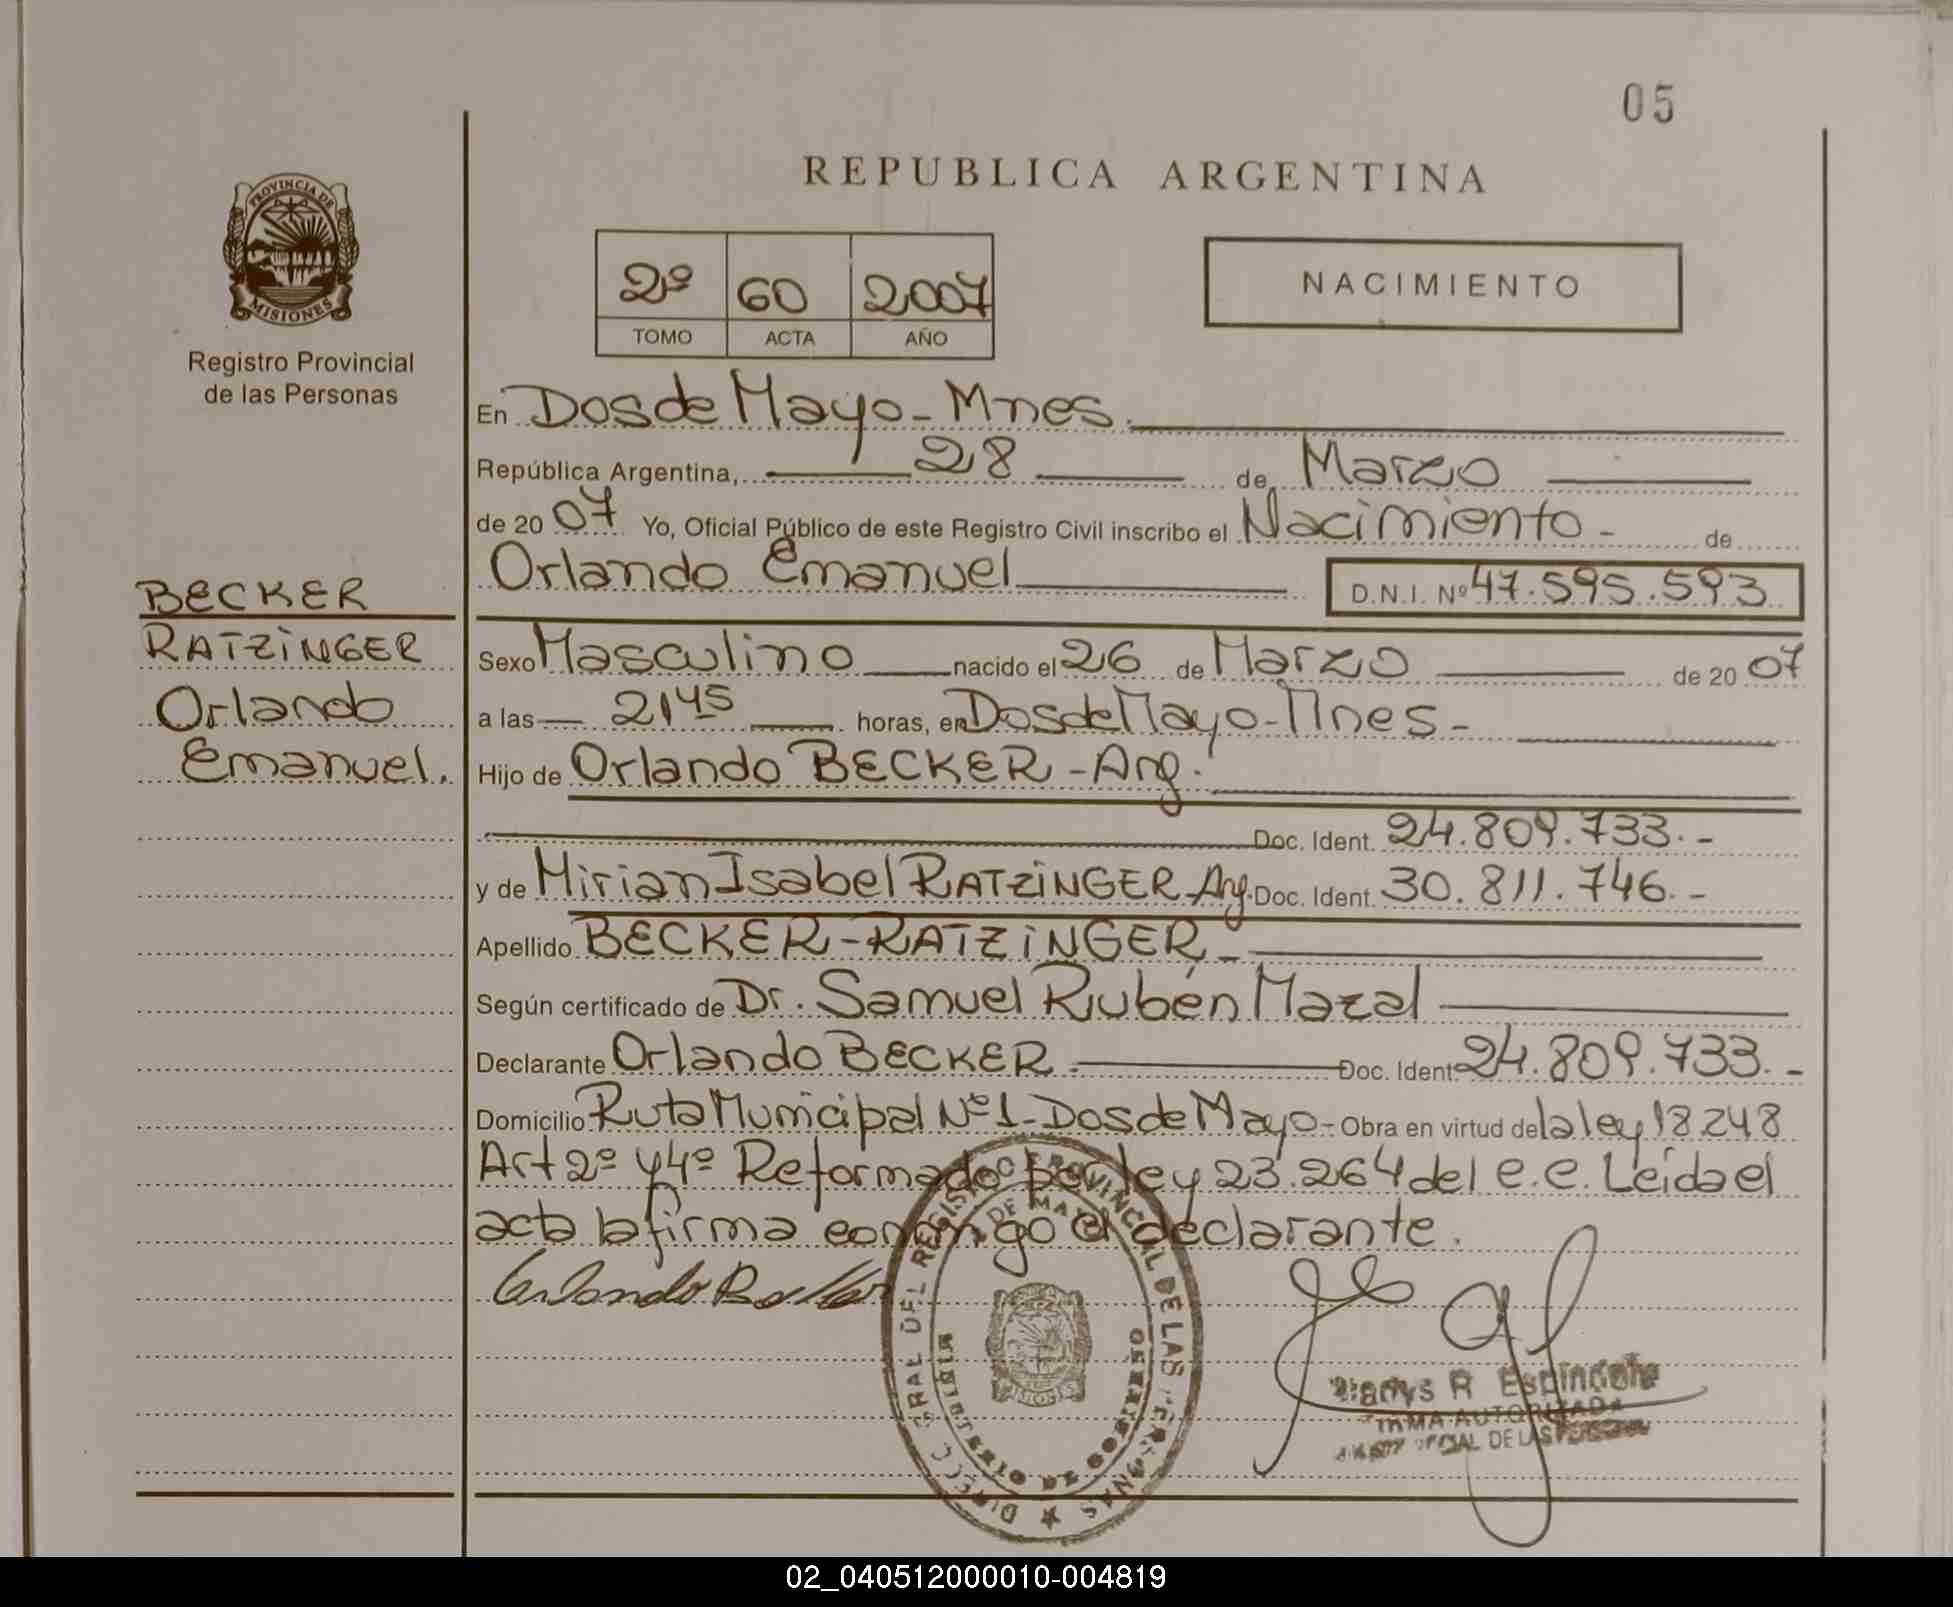 05
REPUBLICA ARGENTINA
PROVINCIA DE
MISIONES
Registro Provincial
de las Personas
2º 60 2007
TOMO ACTA AÑO
NACIMIENTO
En Dos de Mayo - Mnes.
República Argentina, 28 de Marzo
de 20 07 Yo, Oficial Público de este Registro Civil inscribo el Nacimiento - de
Orlando Emanuel D.N.I. Nº 47.595.593
BECKER
RATZiNGER
Orlando
Emanuel.
Sexo Masculino nacido el 26 de Marzo de 20 07
a las 21 45 horas, en Dos de Mayo - Mnes -
Hijo de Orlando BECKER - Arg.
Doc. Ident. 24.809.733. -
y de Mirian Isabel RATZiNGER Arg. Doc. Ident. 30.811.746. -
Apellido BECKER - RATZiNGER -
Según certificado de Dr. Samuel Rubén Mazal
Declarante Orlando BECKER Doc. Ident. 24.809.733. -
Domicilio Ruta Municipal Nº 1 - Dos de Mayo - Obra en virtud de la ley 18248
Art 2º y 4º Reformado por ley 23.264 del e.e. Leida el
acta la firma conmigo el declarante.
Orlando
REGISTRO PROVINCIAL DE LAS
R Espindola
AUTORIZADA
DE LAS
02_040512000010-004819